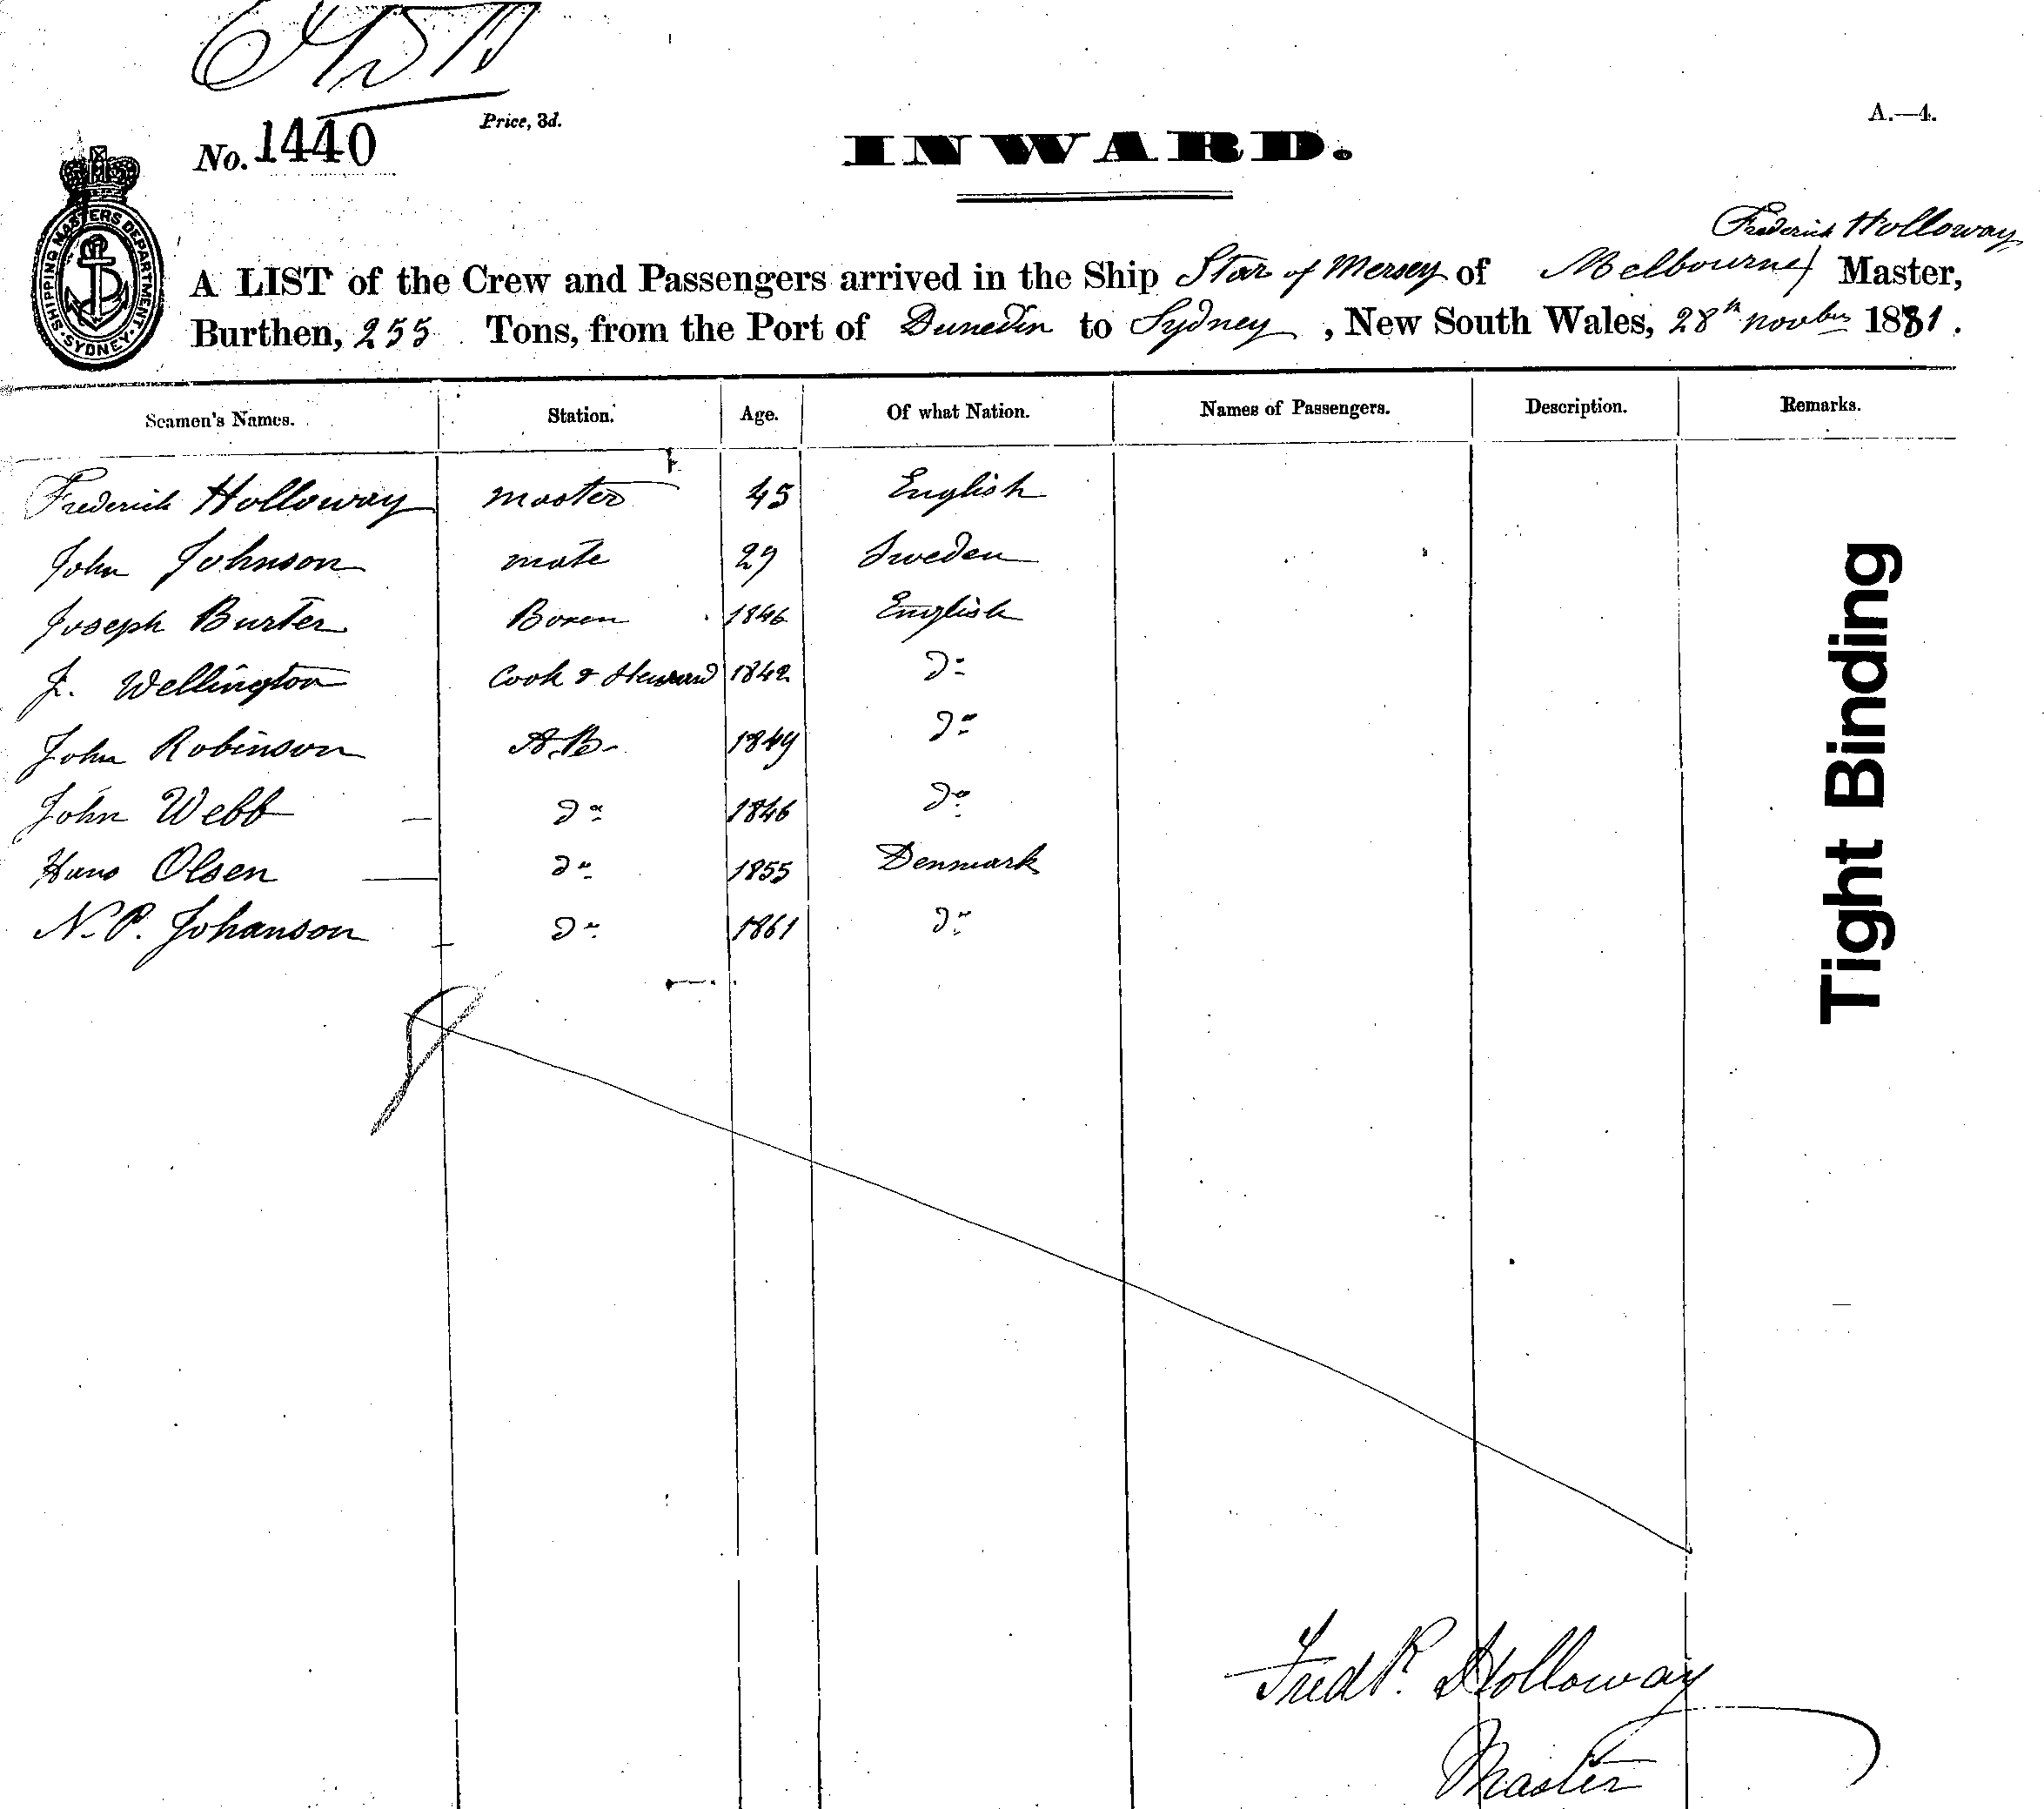 No. 1440
Price, 3d.
A.—4.
INWARD.
SHIPPING MASTERS DEPARTMENT
SYDNEY
Frederick Holloway
A LIST of the Crew and Passengers arrived in the Ship Star of Mersey of Melbourne Master,
Burthen, 255 Tons, from the Port of Dunedin to Sydney, New South Wales, 28th Novber 1881.
Seamen's Names. Station. Age. Of what Nation. Names of Passengers. Description. Remarks.
Frederick Holloway master 45 English
John Johnson mate 29 Sweden
Joseph Burter Bosen 1846 English
J. Wellington Cook & Steward 1842 Do
John Robinson A.B. 1849 Do
John Webb Do 1846 Do
Hans Olsen Do 1855 Denmark
N. P. Johanson Do 1861 Do
Tight Binding
Fredk. Holloway
Master